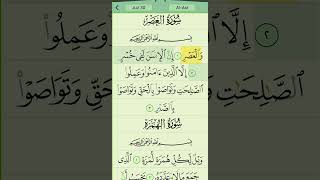 Juz 30
Al-Asr
سُورَةُ العَصْرِ
بِسْمِ اللَّهِ الرَّحْمَٰنِ الرَّحِيمِ
وَٱلْعَصْرِ ١ إِنَّ ٱلْإِنسَٰنَ لَفِى خُسْرٍ
٢ إِلَّا ٱلَّذِينَ ءَامَنُوا۟ وَعَمِلُوا۟
ٱلصَّٰلِحَٰتِ وَتَوَاصَوْا۟ بِٱلْحَقِّ وَتَوَاصَوْا۟
بِٱلصَّبْرِ ٣
سُورَةُ الهُمَزَةِ
بِسْمِ اللَّهِ الرَّحْمَٰنِ الرَّحِيمِ
وَيْلٌ لِّكُلِّ هُمَزَةٍ لُّمَزَةٍ ١ ٱلَّذِى
جَمَعَ مَالًا وَعَدَّدَهُۥ ٢ يَحْسَبُ